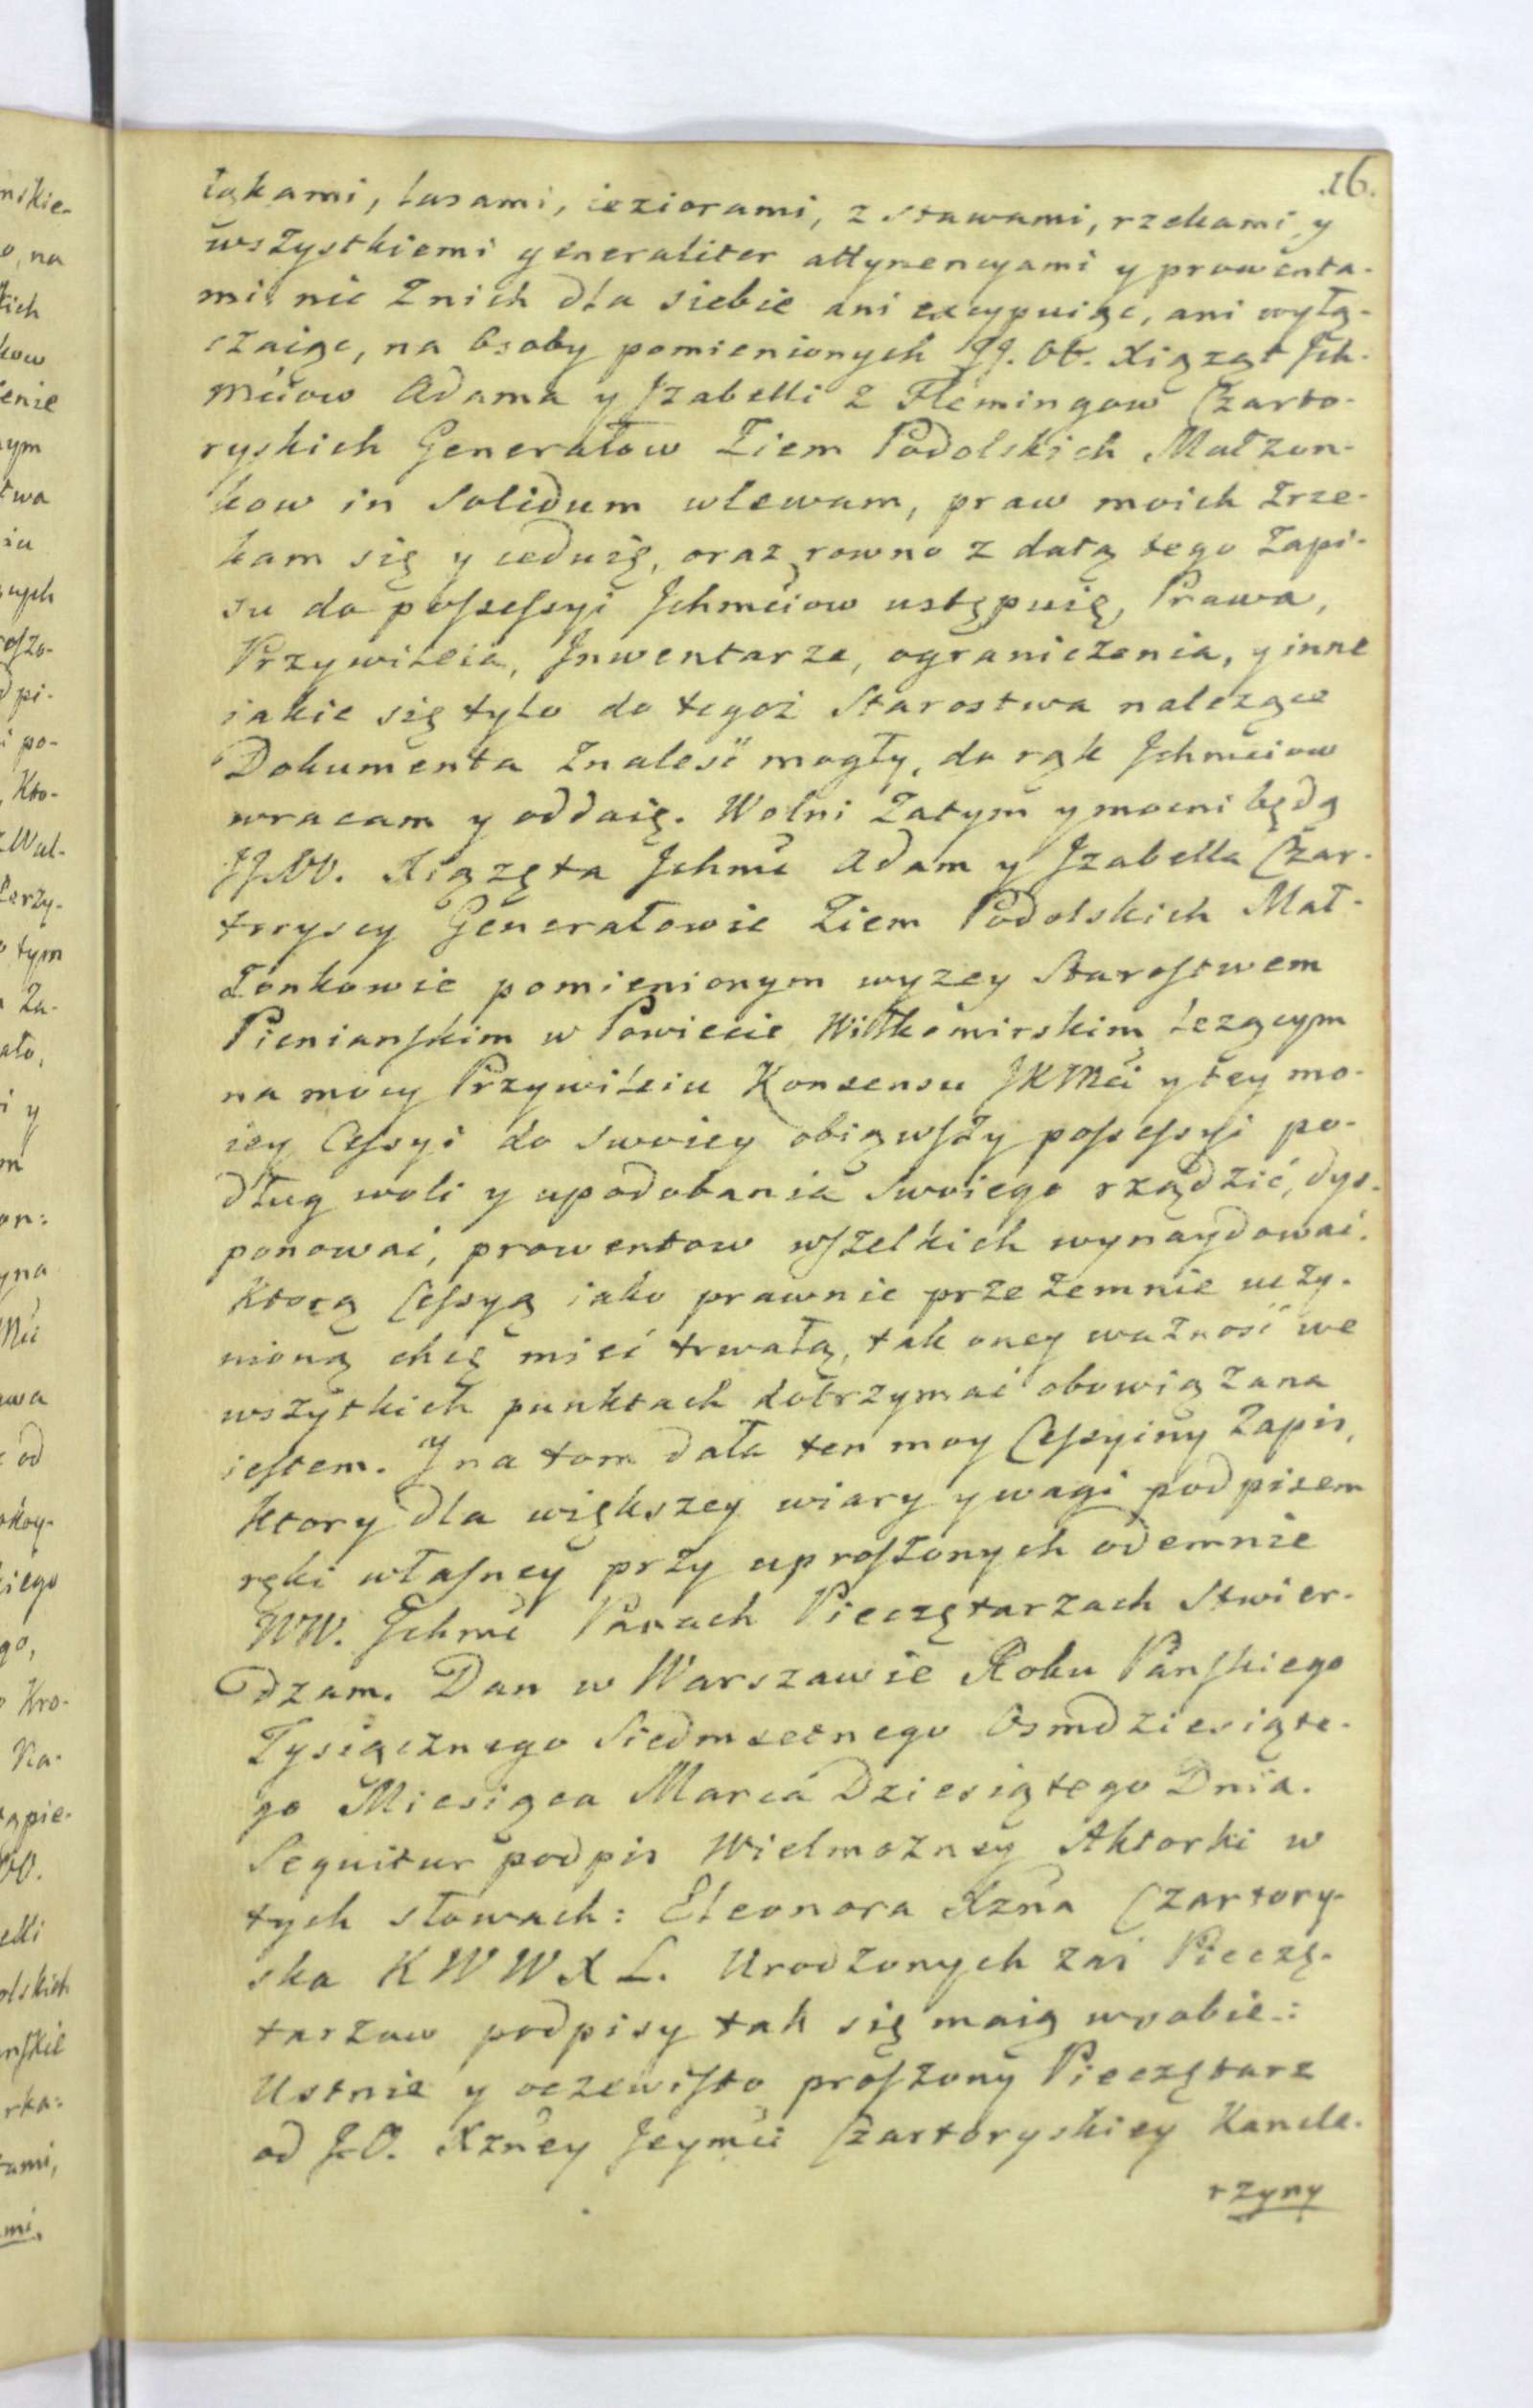 .16.
łąkami, lasami, ieziorami, z stawami, rzekami y
wszystkiemi generaliter attynencyami y prowenta-
mi, nic z nich dla siebie ani excypuiąc, ani wyłą-
czaiąc, na Osoby pomienionych JJ. OO. Xiążąt Ich-
mciow Adama y Izabelli z Flemingow Czarto-
ryskich Generałow Ziem Podolskich Małzon-
kow in Solidum wlewam, praw moich zrze-
kam się y ceduię, oraz rowno z datą tego Zapi-
su do possessyi Ichmciow ustępuię, Prawa,
Przywileia, Inwentarze, ograniczenia, y inne
iakie się tylo do tegoż Starostwa nalezące
Dokumenta znaleść mogły, do rąk Ichmciow
wracam y oddaię. Wolni zatym y mocni będą
JJ.OO. Xiążęta Ichmć Adam y Izabella Czar-
toryscy Generałowie Ziem Podolskich Mał-
żonkowie pomienionym wyzey Starostwem
Pienianskim w Powiecie Wiłkomirskim lezącym
na mocy Przywileiu Konsensu JKMci y tey mo-
iey Cessyi do swoiey obiąwszy possessyi po-
dług woli y upodobania swoiego rządzić, dys-
ponować, prowentow wszelkich wynaydować.
Ktorą Cessyą iako prawnie przezemnie uczy-
nioną chcę mieć trwałą, tak oney ważność we
wszytkich punktach dotrzymać obowiązana
iestem. I na tom dała ten moy Cessyiny Zapis,
ktory dla większey wiary y wagi podpisem
ręki własney przy uproszonych odemnie
WW. Ichmć Panach Pieczętarzach Stwier-
dzam. Dan w Warszawie Roku Panskiego
Tysiącznego Siedmsetnego Osmdziesiąte-
go Miesiąca Marca Dziesiątego Dnia.
Sequitur podpis Wielmożney Aktorki w
tych słowach: Eleonora Xzna Czartory-
ska K W W X L. Urodzonych zaś Pieczę-
tarzow podpisy tak się maią w sobie:
Ustnie y oczewisto proszony Pieczętarz
od J.O. Xzney Jeymci Czartoryskiey Kancle-
rzyny